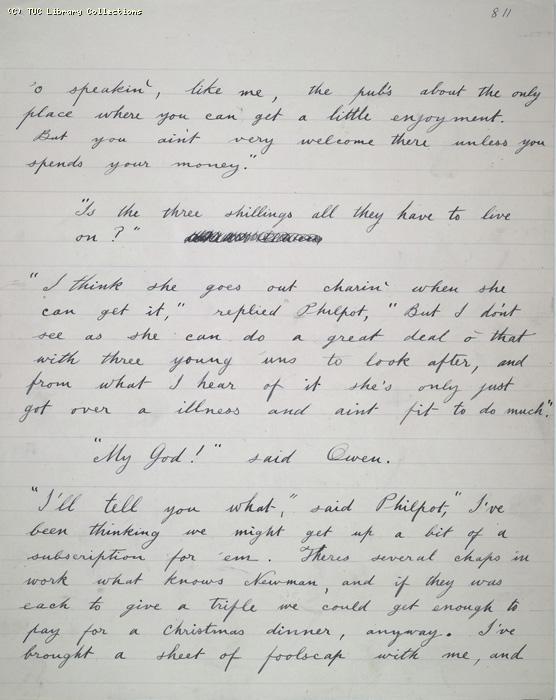 (C) TUC Library Collections
811
'o speakin', like me, the pub's about the only
place where you can get a little enjoyment.
But you ain't very welcome there unless you
spends your money."
"Is the three shillings all they have to live
on?"
"I think she goes out charin' when she
can get it," replied Philpot, "But I don't
see as she can do a great deal o' that
with three young 'uns to look after, and
from what I hear of it she's only just
got over a illness and aint fit to do much."
"My God!" said Owen.
"I'll tell you what," said Philpot, "I've
been thinking we might get up a bit of a
subscription for 'em. Theres several chaps in
work what knows Newman, and if they was
each to give a trifle we could get enough to
pay for a Christmas dinner, anyway. I've
brought a sheet of foolscap with me, and